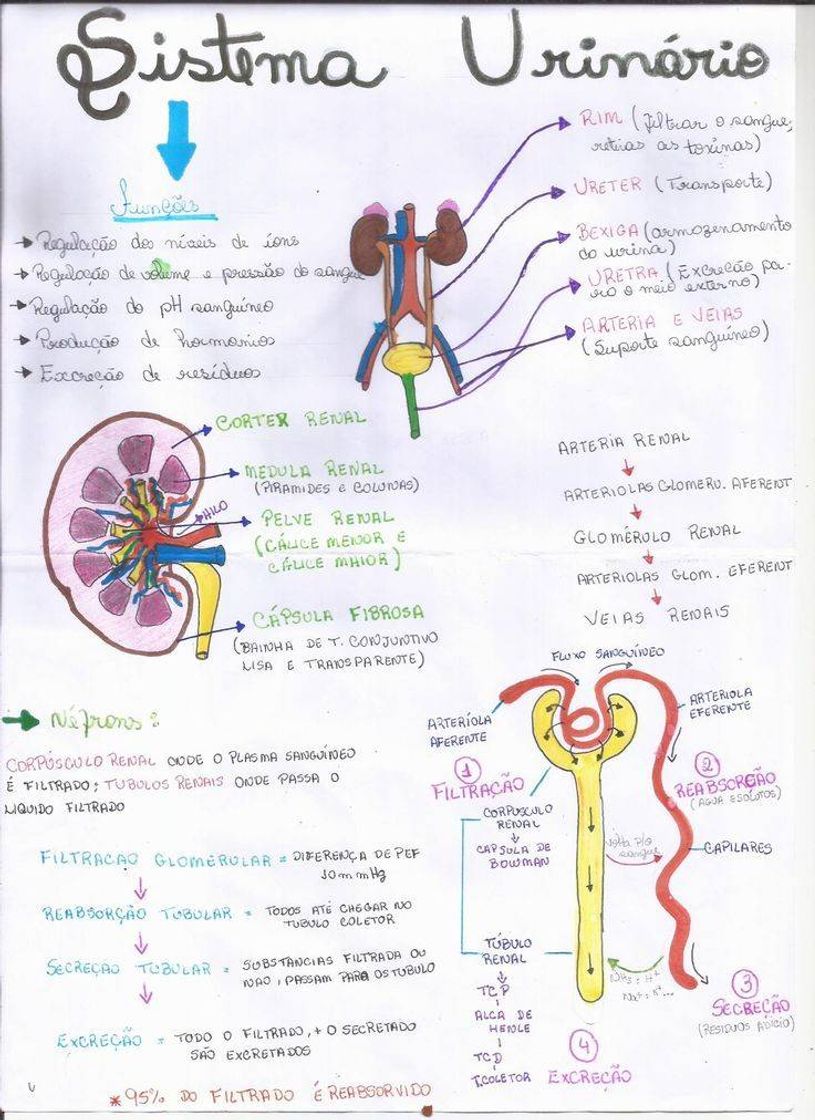 Sistema Urinário
Funções
Regulação dos níveis de íons
Regulação de volume e pressão do sangue
Regulação do pH sanguíneo
Produção de hormonios
Excreção de resíduos
RIM (filtrar o sangue,
retirar as toxinas)
URETER (Transporte)
BEXIGA (armazenamento
da urina)
URETRA (Excreção pa-
ra o meio externo)
ARTERIA E VEIAS
(Suporte sanguíneo)
CORTEX RENAL
MEDULA RENAL
(PIRAMIDES e COLUNAS)
HILO
PELVE RENAL
(CÁLICE MENOR E
CÁLICE MAIOR)
CÁPSULA FIBROSA
(BAINHA DE T. CONJUNTIVO
LISA E TRANSPARENTE)
ARTERIA RENAL
ARTERIOLAS GLOMERU. AFERENT
GLOMÉRULO RENAL
ARTERIOLAS GLOM. EFERENT
VEIAS RENAIS
Néfrons:
CORPÚSCULO RENAL ONDE O PLASMA SANGUÍNEO
É FILTRADO; TUBULOS RENAIS ONDE PASSA O
LIQUIDO FILTRADO
FILTRACAO GLOMERULAR = DIFERENÇA DE PEF
10 mmHg
REABSORÇÃO TUBULAR = TODOS ATÉ CHEGAR NO
TUBULO COLETOR
SECREÇÃO TUBULAR = SUBSTÂNCIAS FILTRADA OU
NAO, PASSAM PARA OS TUBULO
EXCREÇÃO = TODO O FILTRADO, + O SECRETADO
SÃO EXCRETADOS
* 95% DO FILTRADO É REABSORVIDO
FLUXO SANGUÍNEO
ARTERÍOLA
AFERENTE
ARTERIOLA
EFERENTE
1
FILTRAÇÃO
2
REABSORÇÃO
(AGUA E SOLUTOS)
CORPUSCULO
RENAL
CAPSULA DE
BOWMAN
volta p/o
sangue
CAPILARES
TÚBULO
RENAL
TCP
ALCA DE
HENLE
TCD
T.COLETOR
3
SECREÇÃO
4
EXCREÇÃO